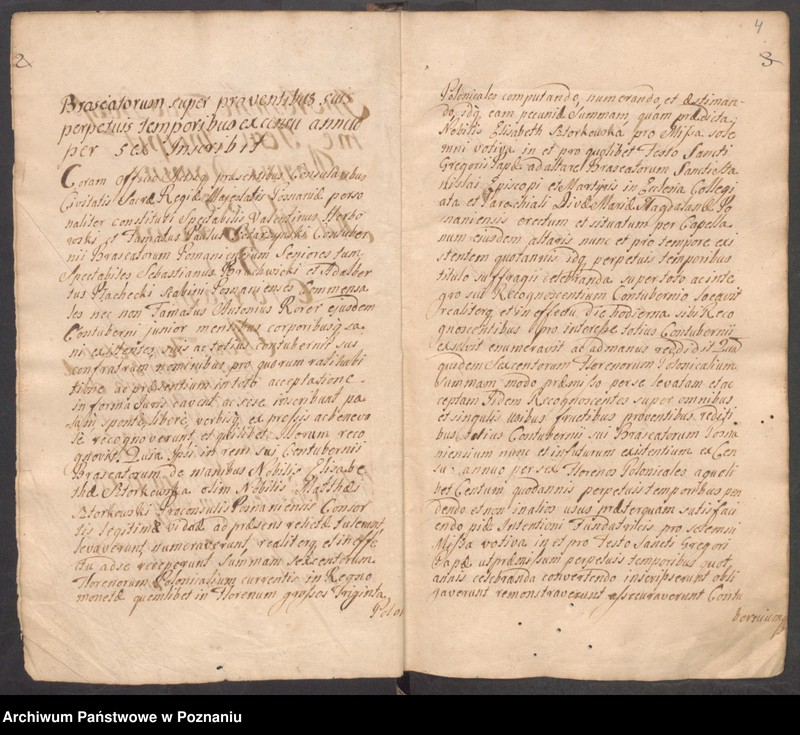 2
Braseatorum super proventibus suis
perpetuis temporibus ex censu annuo
per sex Inscribit
Coram officio nostro præsentibus Consularibus
Civitatis Sacræ Regiæ Majestatis Posnaniæ perso
naliter constituti Spectabilis Valentinus
et Famatus Paulus Contuber
nii Braseatorum Posnaniensium Seniores tum
Spectabiles Sebastianus et Adalber
tus Ptachecki Scabini Posnanienses Commensa
les nec non Famatus Antonius Rorer ejusdem
Contubernii junior mentibus corporibusq sa
ni existentes suis ac totius contubernii sui
confratrum nominibus pro quorum ratihabi
tione ac præsentium in toto acceptatione
in forma Juris cavent ac sese inscribunt pa
lam sponte libere verbisq expressis ac benevo
le recognoverunt et quilibet Illorum reco
gnovit Quia Ipsi in rem sui Contubernii
Braseatorum de manibus Nobilis Elisabe
thæ Btorkowska olim Nobilis Matthæi
Btorkowski Proconsulis Posnaniensis Consor
tis legitimæ viduæ ad præsens relictæ tulerunt
levaverunt numeraverunt realiterq et in effe
ctu ad se receperunt Summam sexcentorum
Florenorum Polonicalium currentis in Regno
monetæ quemlibet in Florenum grossos triginta
Polo
4
3
Polonicales computando, numerando, et æstiman
do, idq eam pecuniæ Summam, quam prædicta
Nobilis Elisabeth Btorkowska pro Missa sole
mni votiva in et pro quolibet Festo Sancti
Gregorii Papæ ad altare Braseatorum Sancti Sta
nislai Episcopi et Martyris in Ecclesia Collegi
ata et Parochiali Divæ Mariæ Magdalenæ Po
snaniensis erectum et situatum per Capella
num ejusdem altaris nunc et pro tempore exi
stentem quotannis idq perpetuis temporibus
titulo suffragii celebranda super toto ac inte
gro sui Recognoscentium Contubernio locavit
realiterq et in effectu die hodierna sibi Reco
gnoscentibus pro interesse totius Contubernii
exsolvit enumeravit ac ad manus reddidit Quam
quidem Sexcentorum Florenorum Polonicalium
Summam modo præmisso per se levatam et ac
ceptam Iidem Recognoscentes super omnibus
et singulis fructibus proventibus rediti
bus totius Contubernii sui Braseatorum Posna
niensium nunc et in futurum existentium ex Cen
su annuo per sex Florenos Polonicales a quoli
bet Centum quotannis perpetuis temporibus pen
dendo et non in alios usus præterquam satisfaci
endo piæ Intentioni Fundatricis pro solemni
Missa votiva in et pro Festo Sancti Gregorii
Papæ ut præmissum perpetuis temporibus quot
annis celebranda convertendo inscripserunt obli
gaverunt remonstraverunt assecuraverunt Contu
bernium
Archiwum Państwowe w Poznaniu